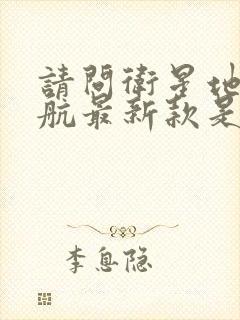 請問衛星地
航最新款是
李息隐